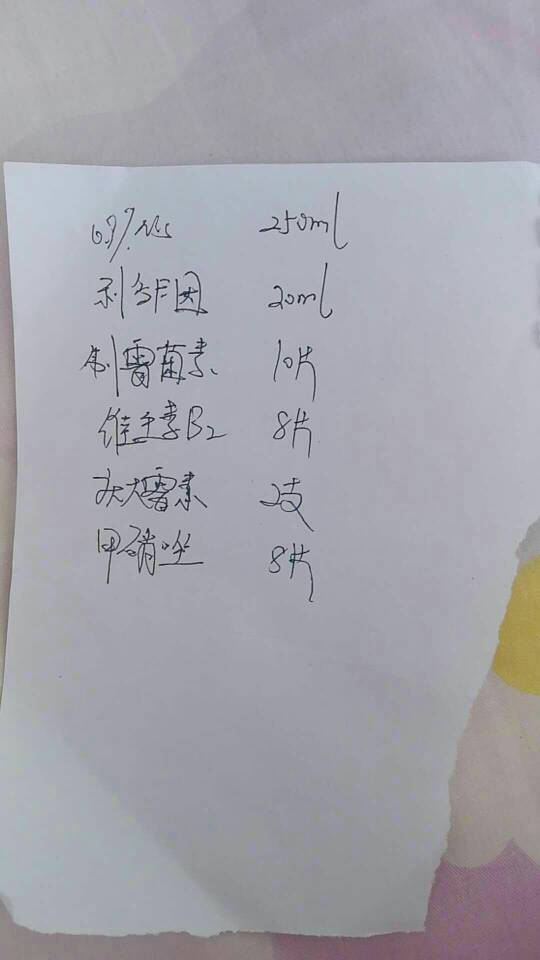 0.9% NS 250ml
利多卡因 20ml
制霉菌素 10片
维生素B2 8片
庆大霉素 2支
甲硝唑 8片